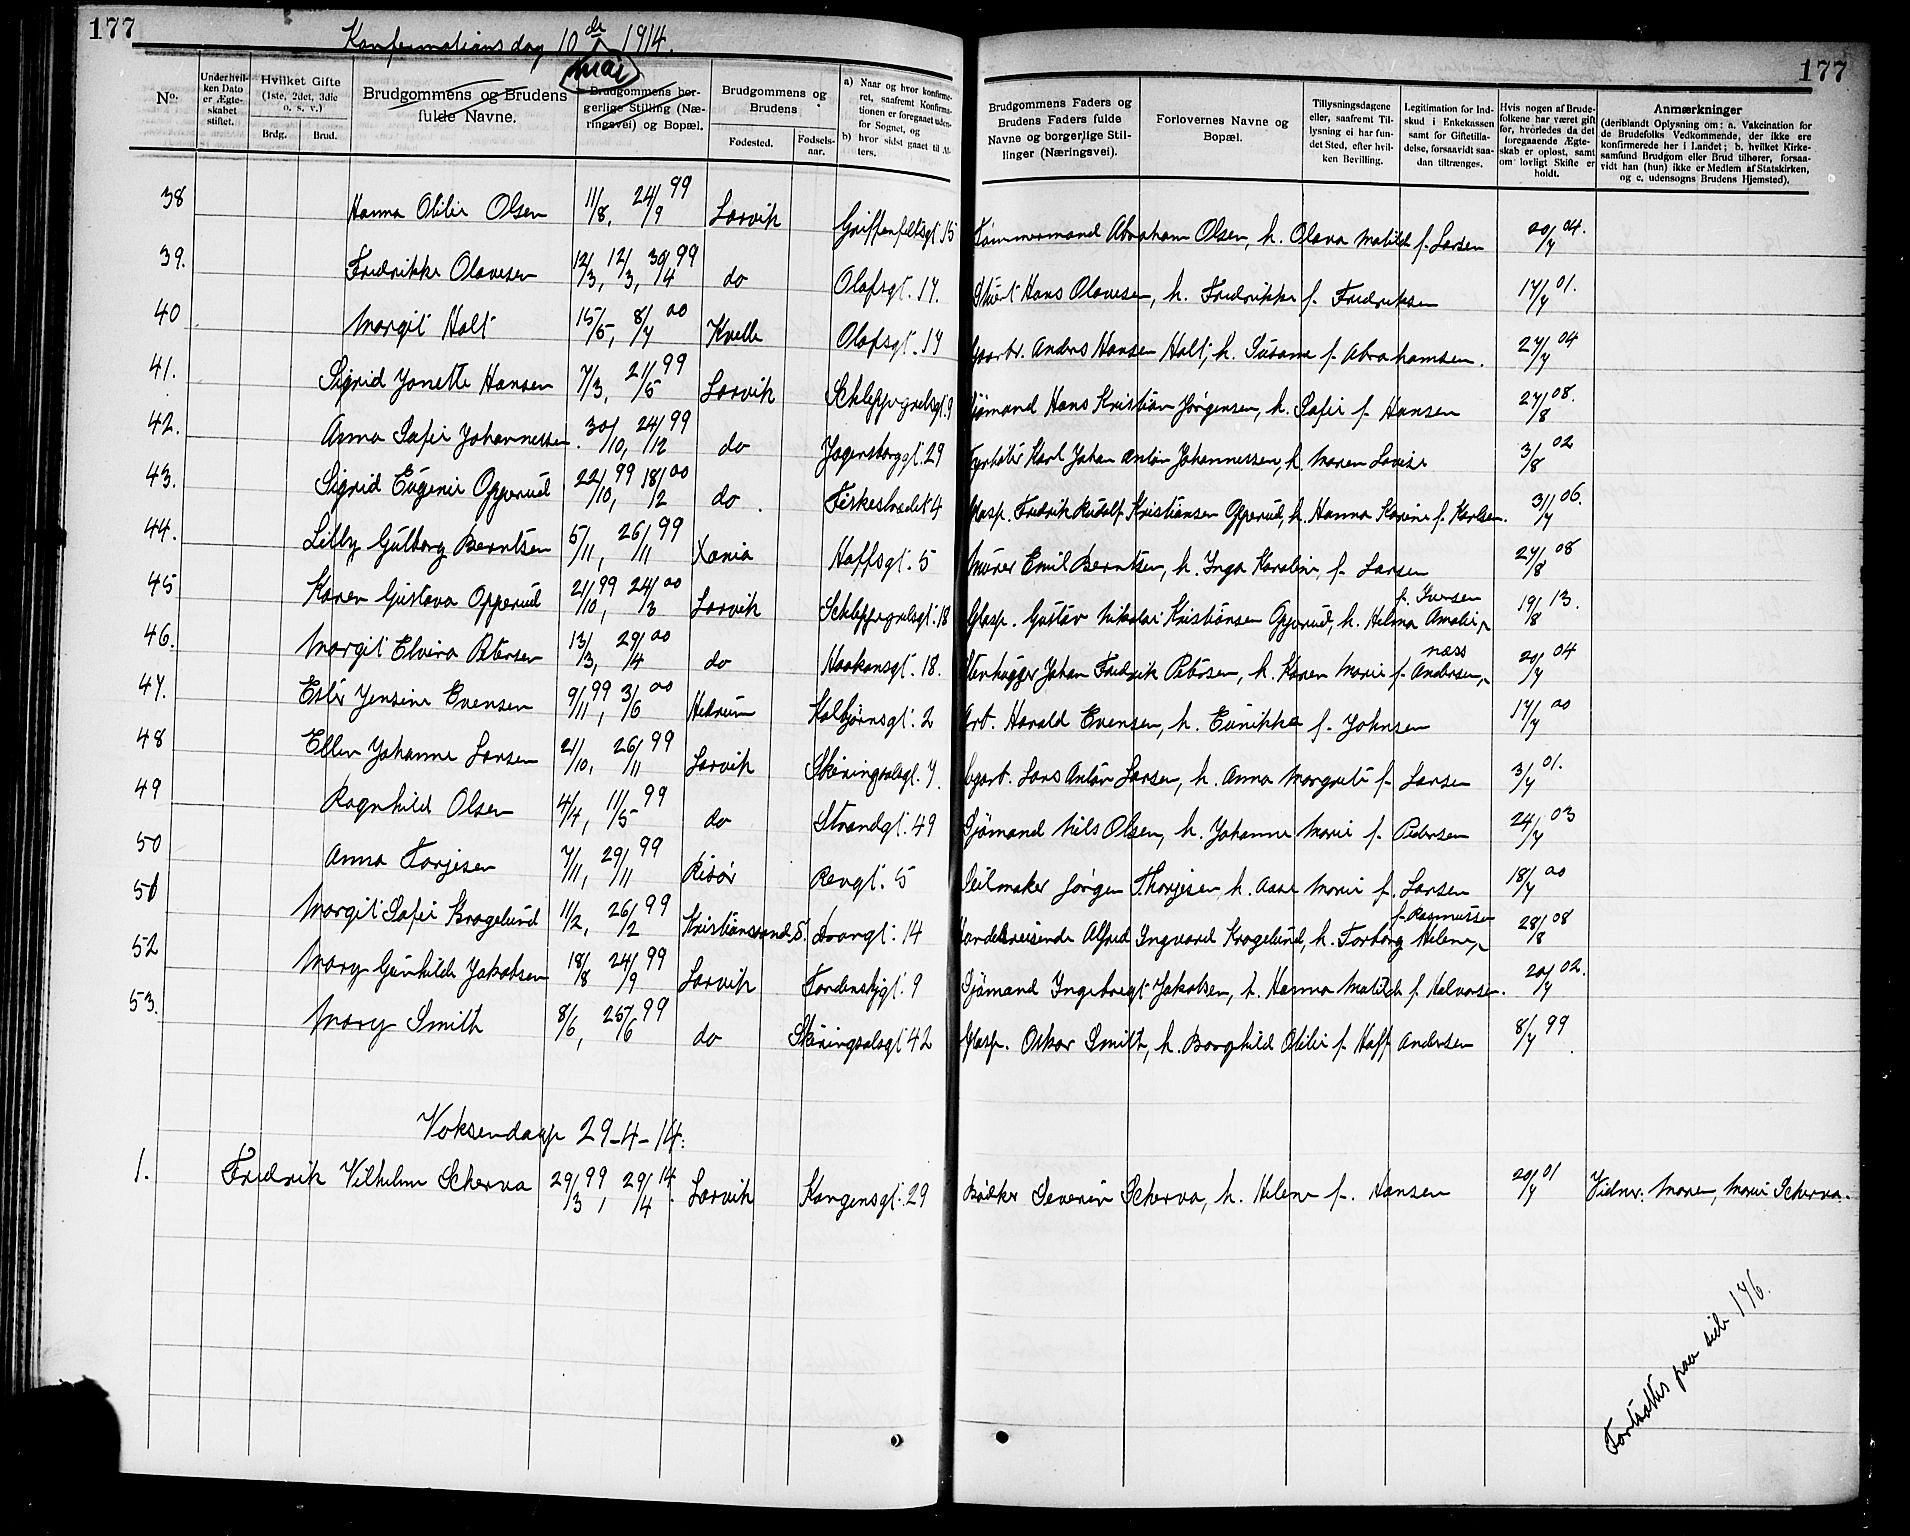 177
177
Konfirmationsdag 10de mai 1914.
No:
Underhvilken Dato er Ægteskabet stiftet.
Hvilket Gifte (1ste, 2det, 3die o. s. v.)
Brdg.
Brud.
Brudgommens og Brudens fulde Navne.
Brudgommens borgerlige Stilling (Næringsvei) og Bopæl.
Brudgommens og Brudens
Fødested.
Fødselsaar.
a) Naar og hvor konfirmeret, saafremt Konfirmationen er foregaaet udenfor Sognet, og
b) hvor sidst gaaet til Alters.
Brudgommens Faders og Brudens Faders fulde Navne og borgerlige Stillinger (Næringsvei).
Forlovernes Navne og Bopæl.
Tillysningsdagene eller, saafremt Tillysning ei har fundet Sted, efter hvilken Bevilling.
Legitimation for Indskud i Enkekassen samt for Giftetilladelse, forsaavidt saadan tiltrænges.
Hvis nogen af Brudefolkene har været gift før, hvorledes da det foregaaende Ægteskab er opløst, samt om lovligt Skifte er holdt.
Anmærkninger
(deriblandt Oplysning om: a. Vakcination for de Brudefolks Vedkommende, der ikke ere konfirmerede her i Landet; b. hvilket Kirkesamfund Brudgom eller Brud tilhører, forsaavidt han (hun) ikke er Medlem af Statskirken, og c. udensogns Brudens Hjemsted).
38 Hanna Otilie Olsen 11/8, 24/9 99 Larvik Griffenfeldtsgt. 15 Tømmermand Abraham Olsen, h. Olava Matilde f. Larsen 20/7 04.
39. Fredrikke Olavesen 12/3, 12/3, 30/4 99 do Olafsgt. 17. Hans Olavesen, h. Fredrikke f. Fredriksen 17/7 01.
40 Margit Holt 15/5, 8/7 00 Kvelle Olafsgt. 17 Gaarbr. Anders Hansen Holt, h. Susane f. Abrahamsen. 27/7 04
41. Sigrid Jonette Hansen 7/3, 21/5 99 Larvik Schleppegrelsgt. 9 Sjømand Hans Kristian Jørgensen, h. Sofie f. Hansen 27/8 08.
42. Anna Sofie Johannessen. 30/10, 24/12 99 do Jegersborggt. 29 Fyrbøter Karl Johan Anton Johannessen, h. Maren Lovise 3/8 02
43. Sigrid Eugenie Opperud 22/10 99, 18/2 00 do. Firkestrædet 4 Glasp. Fredrik Rudolf Kristiansen Opperud, h. Hanna Karine f. Karlsen. 3/7 06.
44. Lilly Gulborg Berntsen 5/11, 26/11 99 Xania Hoffsgt. 5 Murer Emil Berntsen, h. Inga Karoline, f. Larsen 27/8 08
45 Karen Gustava Opperud 21/10 99, 24/3 00 Larvik Schleppegrelsgt. 18 Glasp. Gustav Nikolai Kristiansen Opperud, h. Helma Amalie, f. Iversen 19/8 13.
46. Margit Elvira Petersen 13/3, 29/4 00 do Haakonsgt. 18. Stenhugger Johan Fredrik Petersen, h. Karen Marie f. Andersen, Næss 20/7 04
47. Ester Jensine Evensen 9/11 99, 3/6 00 Hedrum Kolbjørnsgt. 2 Arb. Harald Evensen, h. Eunikke f. Johnsen 17/7 00
48 Ellen Johanne Larsen 21/10, 26/11 99 Larvik Skiringssalsgt. 7. Lars Anton Larsen, h. Anna Margrete f. Larsen 3/7 01.
49 Ragnhild Olsen 4/4, 11/5 99 do Strandgt. 49 Sjømand Nils Olsen, h. Johanne Marie f. Pedersen 24/7 03
50 Anna Torjesen 7/11, 29/11 99 Risør Revgt. 5 Seilmaker Jørgen Thorjesen h. Aase Marie f. Larsen 18/7 00
51 Margit Sofie Kragelund 11/2, 26/2 99 Kristianssand, S. Trangt. 14 Handelsreisende Alfred Ingvard Kragelund, h. Torborg Helene, f. Rasmussen 28/8 08
52 Mary Gunhilde Jakobsen 18/8 24/9 99 Larvik Tordenskjgt. 9 Sjømand Ingebregt Jakobsen, h. Hanna Matilde f. Halvorsen. 20/7 02.
53. Mary Smith 8/6, 25/6 99 do Skiringssalsgt 42 Glasp. Oskar Smitt, h. Borghild Otilie f. Hoff Andersen 8/7 99
Voksendaap 29-4-14:
1. Fredrik Vilhelm Scherva 29/3 99, 29/4 14. Larvik Kongensgt. 29 Bødker Severin Scherva, h. Helene f. Hansen 20/7 01 Vidner: Maren, Marie Scherva.
Fortsættes paa side 176.